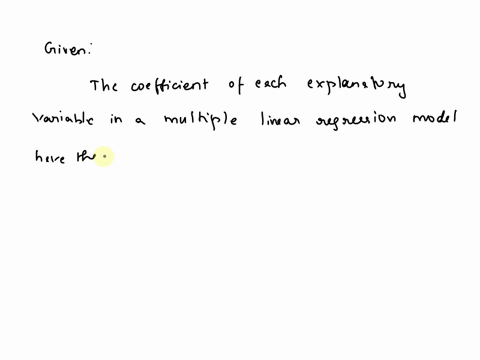 Given:
The coefficient of each explanatory
variable in a multiple linear regression model
have the